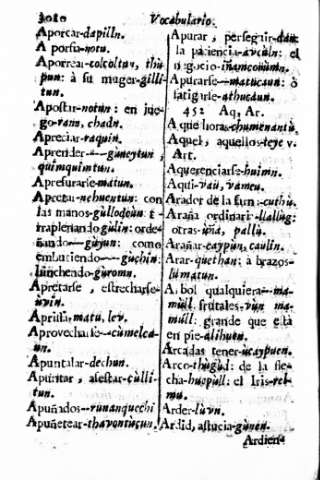 3010 Vocabulario.
Aporcar-dapilln.
A porfia-notu.
Aporrear-colcoltun, thù
pun: à su muger-gilli-
tun.
Apostar-notun: en jue-
go-rans, chadn.
Apreciar-raquin.
Aprender-guneytun,
quimquimtun.
Apresurarse-matun.
Apretar-nehuentun: con
las manos-gùllodeun: t
ordeñando-gùyun: como
embutiendo-gùchin:
hinchendo-gùromn.
Apretarse, estrecharse-
ùvin.
Aprissa-matu, lev.
Aprovecharse-cùmelca-
un.
Apuntalar-dechun.
Apuntar, asestar-cùlli-
tun.
Apuñados-rùnanquechi
Apuñetear-thavontùcun.
Apurar, perseguir-dau
la paciencia-avcùln: el
negocio-iñamconùmn.
Apurarse-matucaun: ò
fatigarse-athucaun.
452 Aq, Ar.
A que hora-chumenantù.
Aquel, aquellos-teye v.
Art.
Aquerenciarse-huimn.
Aqui-vaù, vameu.
Arador de la sarna-cuthù.
Araña ordinaria-llallùg:
otras-iña, pallù.
Arañar-caypùn, caulin.
Arar-quethan: à brazos-
lùmatun.
Arbol qualquiera-ma-
mùll: frutales-vùn ma-
mùll: grande que està
en pie-alihuen.
Arcadas tener-ùcaypuen.
Arco-thùgùd: de la fle-
cha-huepùll: el Iris-rel-
mu.
Arder-lùvn.
Ardid, astucia-gùnen.
Ardien-